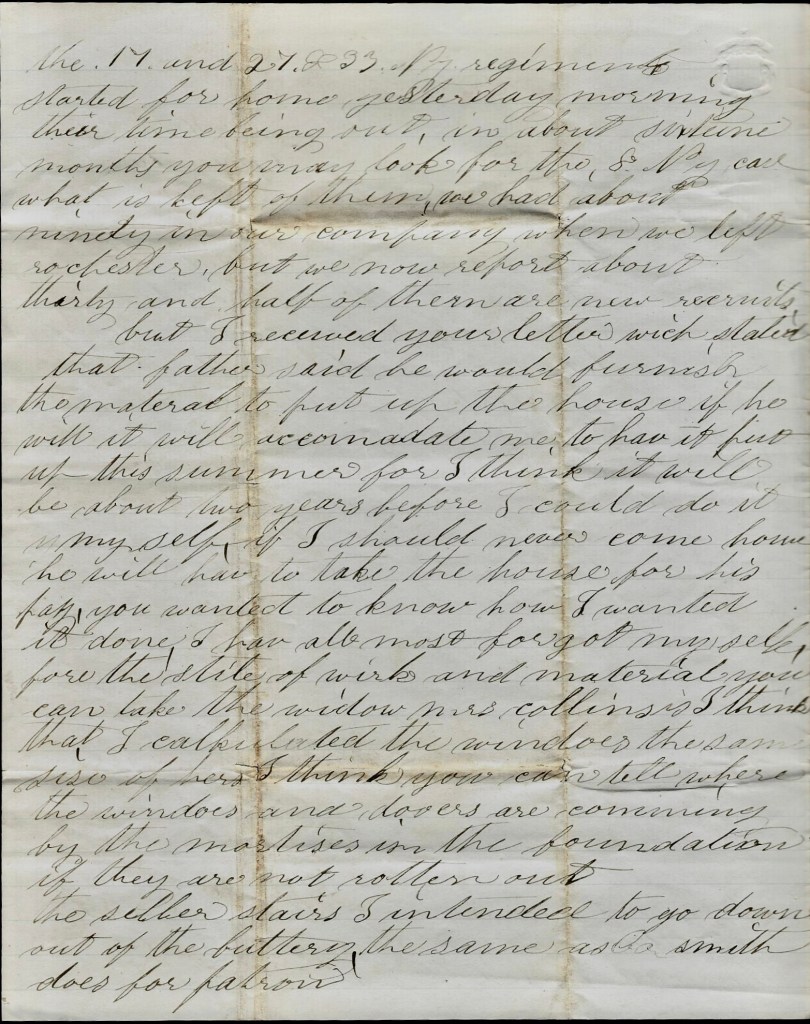 the .17. and 27. & 33. Ny. regiment
started for home yesterday morning
their time being out, in about sixteine
months you may look for the, 8. Ny cav
what is left of them, we had about
ninety in our company when we left
rochester, but we now report about
thirty and half of them are new recruits
but I received your letter wich stated
that father said he would furnish
the materal to put up the house if he
will it will accomadate me to hav it put
up this summer for I think it will
be about two years before I could do it
my self, if I should never come home
he will hav to take the house for his
pay, you wanted to know how I wanted
it done, I hav all most forgot my self,
fore the stile of wirk and material you
can take the widow mrs collinsis I think
that I calkulated the windoes the same
sise of hers I think you can tell where
the windoes and dooers are comming
by the mortises in the foundation
if they are not rotten out
the seller stairs I intended to go down
out of the buttery, the same as smith
does for patron